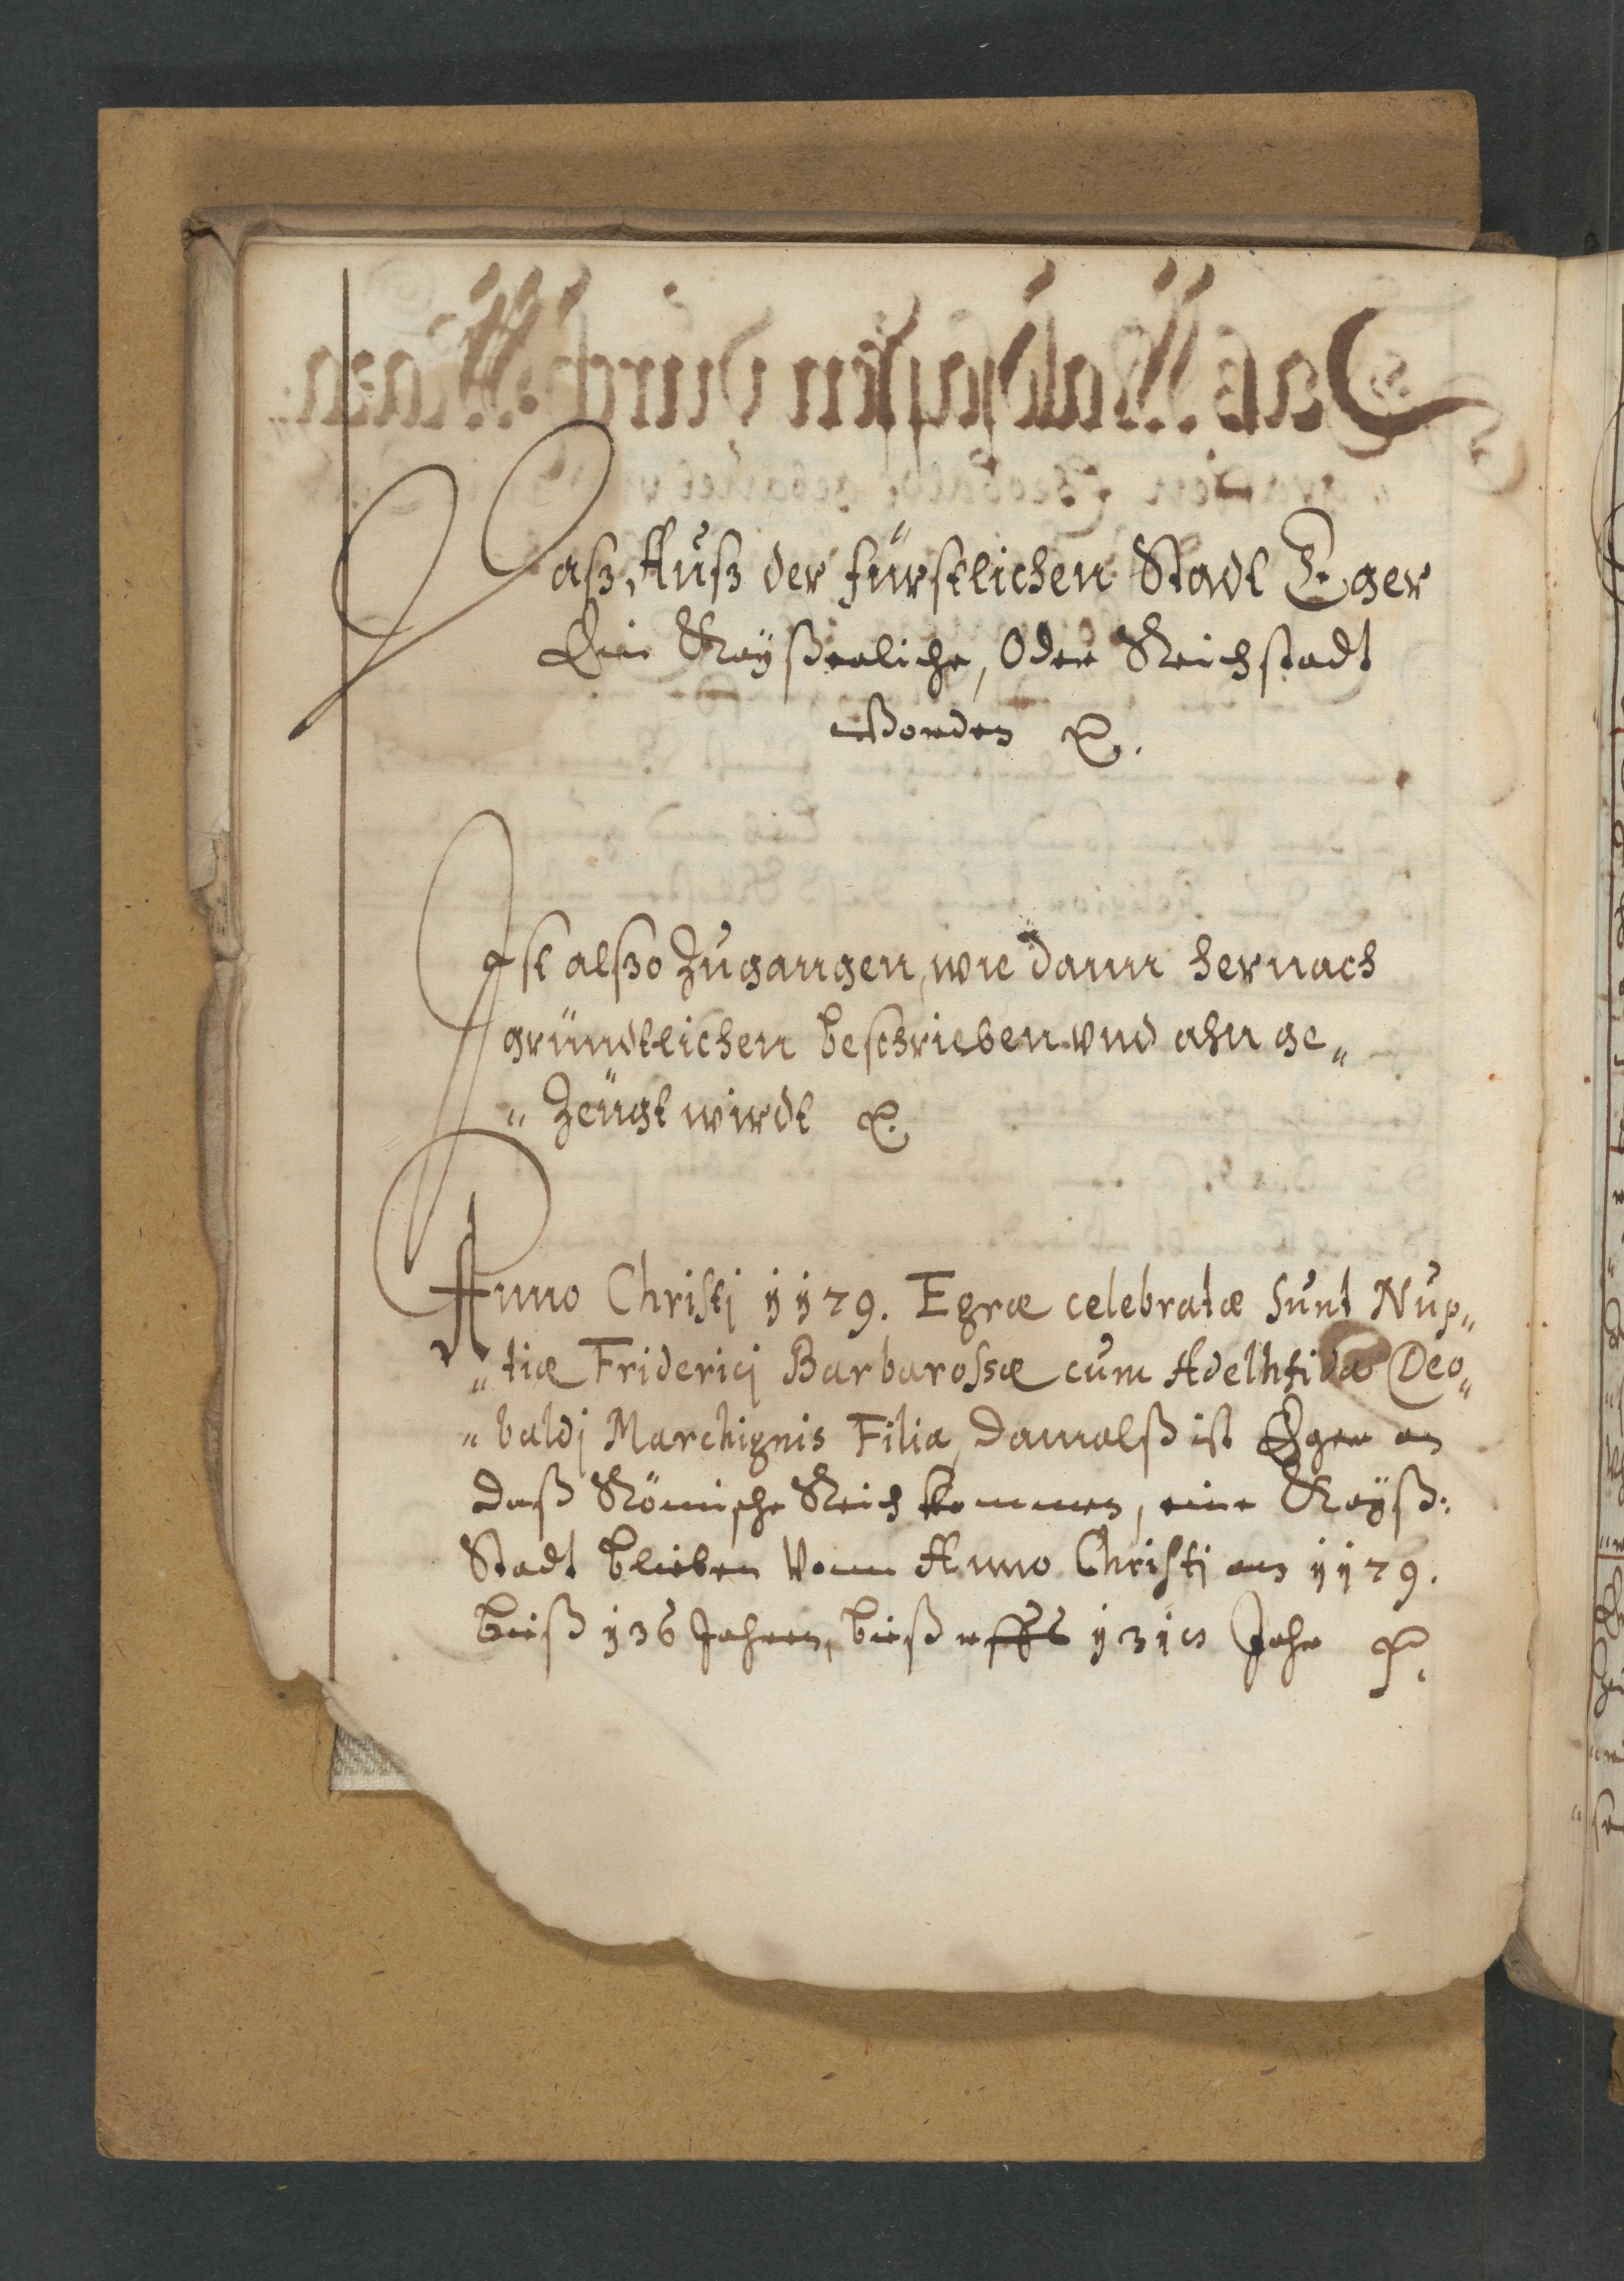 Daß, Auß der fürstlichen Stadt Eger
Ein Kayßerliche, Oder Reichstadt
worden ꝛc.
Ist alßo Zugangen, wie dann hernach
gründtlichen beschrieben vnd ahn ge„
„Zeügt wirdt ꝛc.
Anno Christj 1179. Egræ celebratæ sunt Nup„
„tiæ Friderici Barbarossæ cum Adelhtida Deo„
„baldj Marchignis Filia, damalß ist Eger an
daß Römische Reich kommen, eine Kayß:
Stadt blieben Vonn Anno Christj an 1179.
bieß 136 Jahren, bieß uffs 1315 Jahr ꝛc.